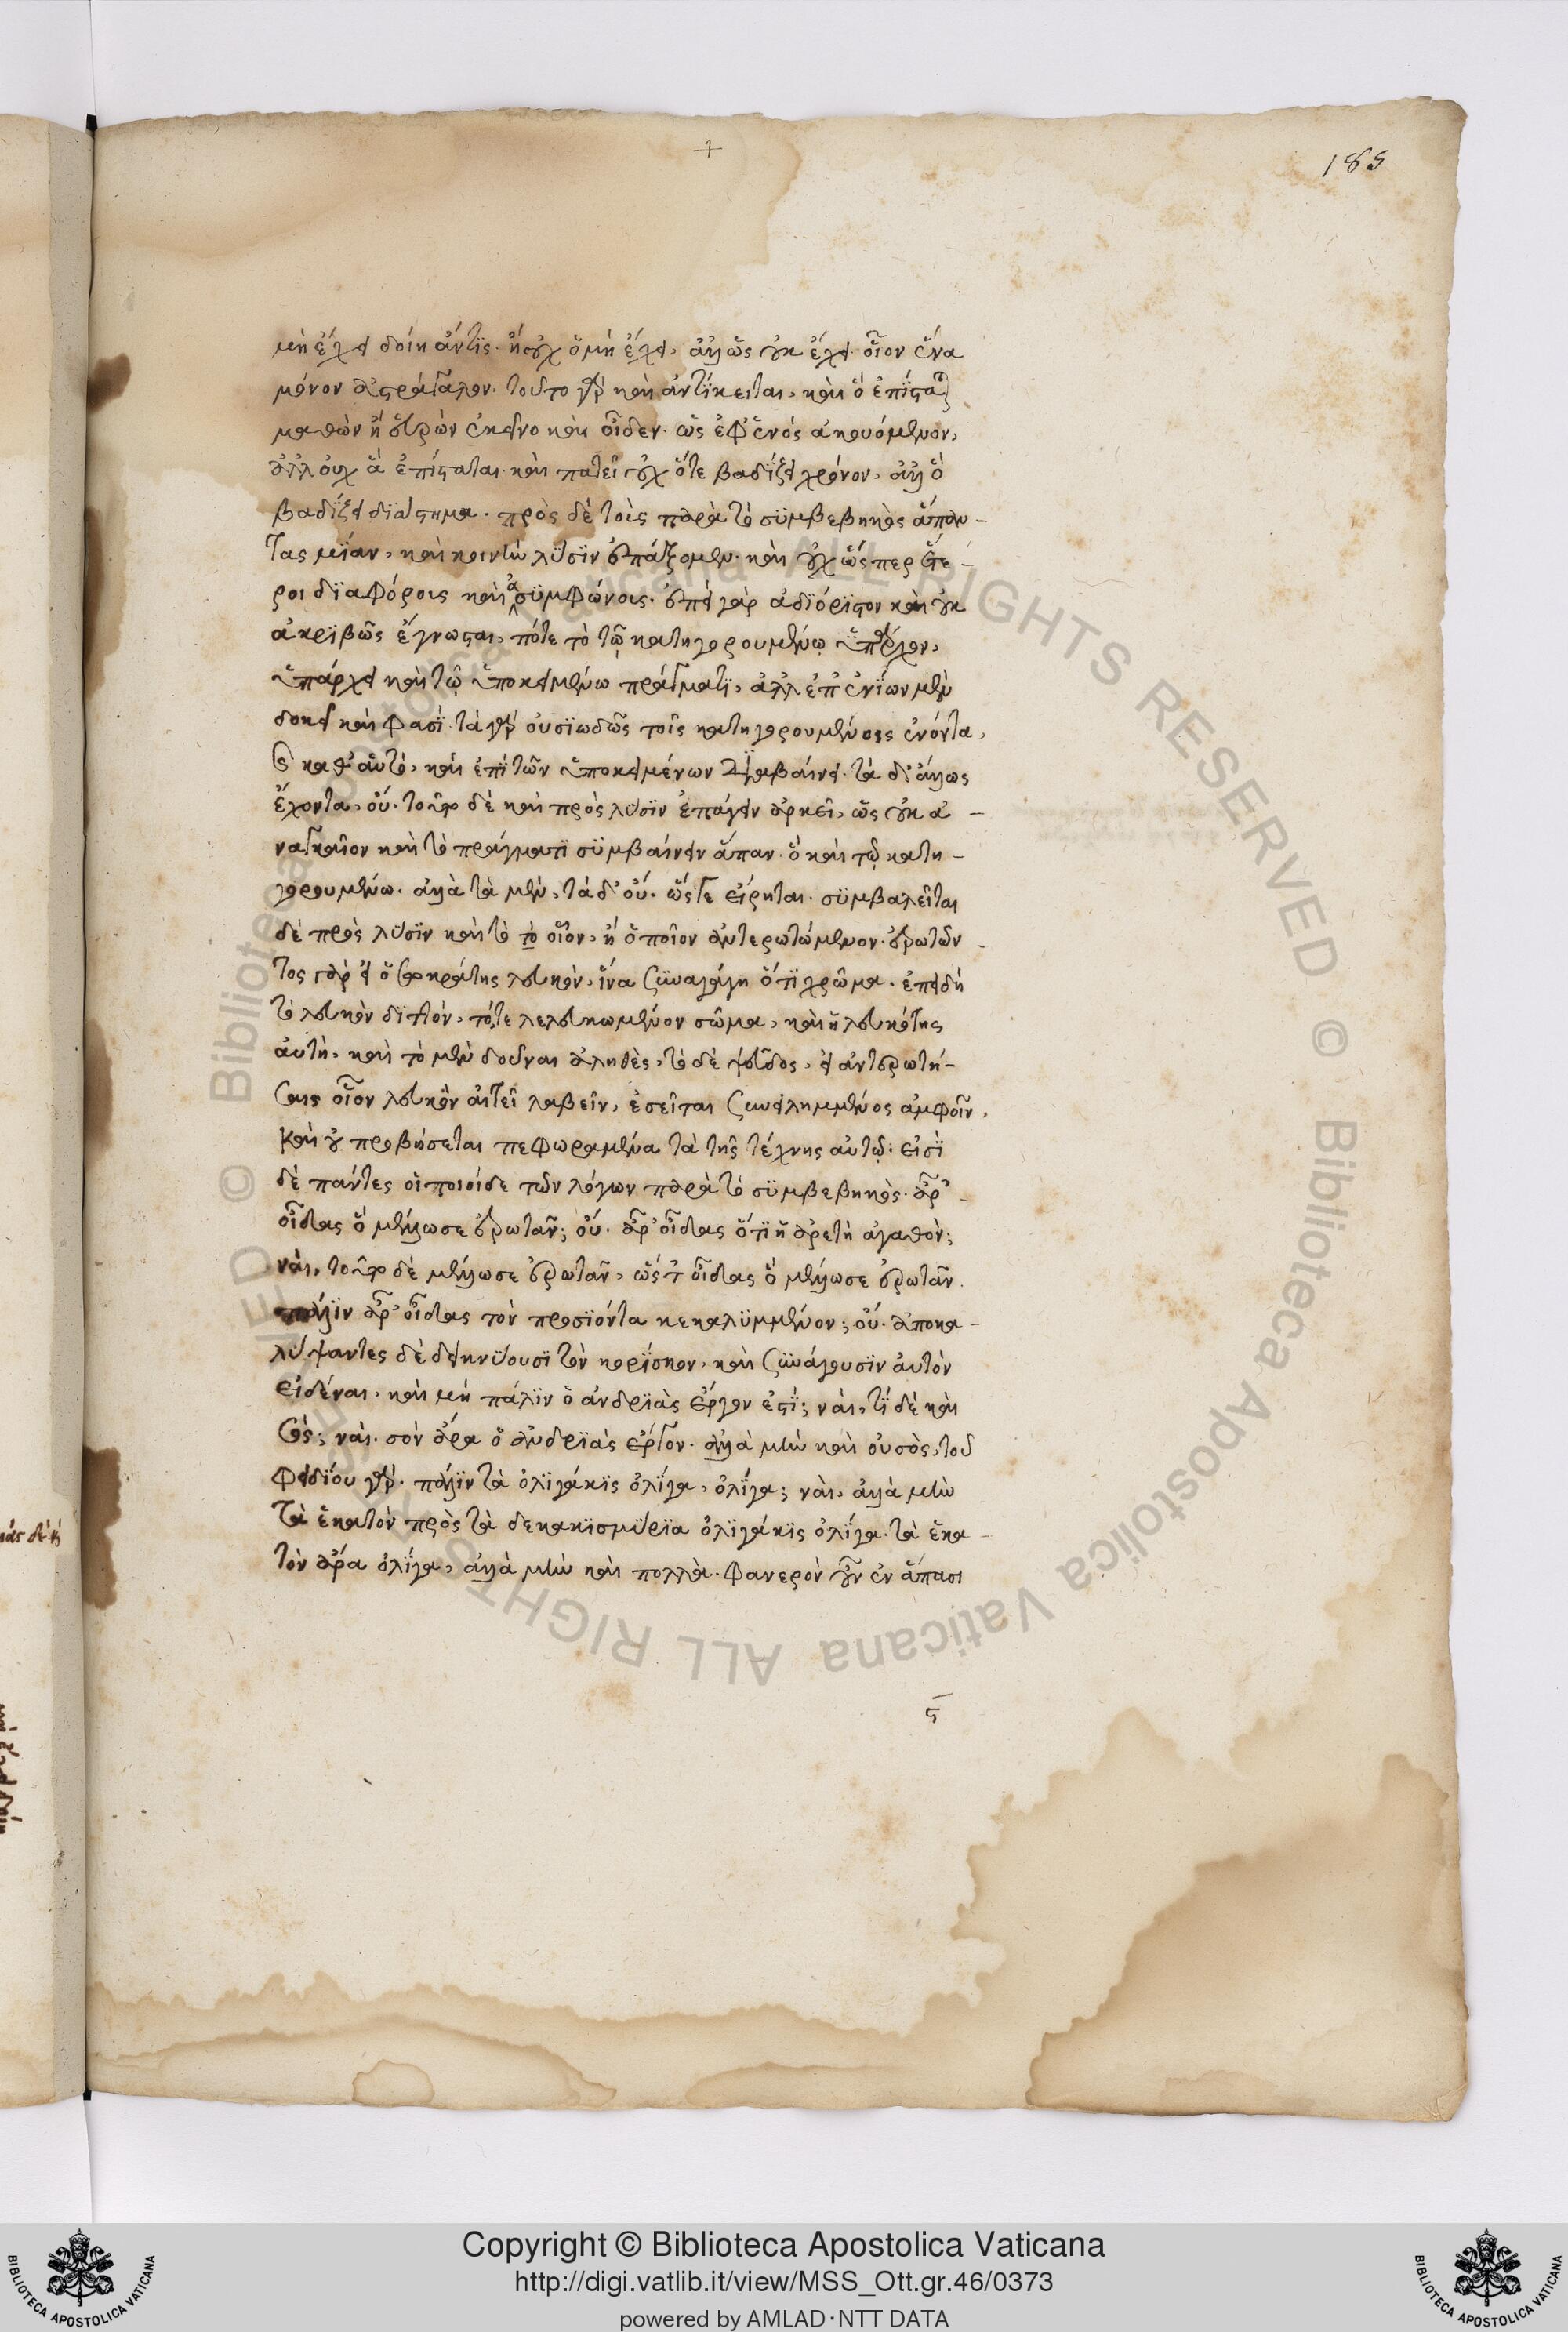 +
185
μὴ ἔχει δοίη ἄν τις· ἢ οὐχ ὃ μὴ ἔχει, ἀλλ' ὡς οὐκ ἔχει· οἷον ἕνα
μόνον ἀστράγαλον· τοῦτο γὰρ καὶ ἀντίκειται, καὶ ὃ ἐπίσταται
μαθὼν ἢ εὑρὼν ἐκεῖνο καὶ οἶδεν· ὡς ἐφ' ἑνὸς ἀκουόμενον,
ἀλλ' οὐχ ἃ ἐπίσταται· καὶ πατεῖ οὐχ ὅτε βαδίζει χρόνον, ἀλλ' ὃ
βαδίζει διάστημα. πρὸς δὲ τοὺς παρὰ τὸ συμβεβηκὸς ἅπαν-
τας μίαν, καὶ κοινὴν λύσιν ἐπάξομεν· καὶ οὐχ ὥσπερ ἕτε-
ροι διαφόροις καὶ ἀσυμφώνοις· ἐπεὶ γὰρ ἀδιόριστον καὶ οὐκ
ἀκριβῶς ἔγνωσται, πότε τὸ τῷ κατηγορουμένῳ ὑπάρχον,
ὑπάρχει καὶ τῷ ὑποκειμένῳ πράγματι, ἀλλ' ἐπ' ἐνίων μὲν
δοκεῖ καὶ φασὶ· τὰ γὰρ οὐσιωδῶς τοῖς κατηγορουμένοις ἐνόντα,
καθ' αὑτό, καὶ ἐπὶ τῶν ὑποκειμένων διαβαίνει· τὰ δ' ἄλλως
ἔχοντα, οὔ. τοῦτο δὲ καὶ πρὸς λύσιν ἐπάγειν ἀρκεῖ, ὡς οὐκ ἀ-
ναγκαῖον καὶ τὸ πράγματι συμβαίνειν ἅπαν· ὃ καὶ τῷ κατη-
γορουμένῳ. ἀλλὰ τὰ μὲν, τὰ δ' οὔ. ὥς γε εἴρηται. συμβαλεῖται
δὲ πρὸς λύσιν καὶ τὸ τὸ οἷον, ἢ ὁποῖον ἀντερωτώμενον· ἐρωτῶν
τος γὰρ εἰ ὁ Σωκράτης λευκὸν, ἵνα συναγάγῃ ὅτι χρῶμα· ἐπειδὴ
τὸ λευκὸν διττόν, τό, τε λελευκωμένον σῶμα, καὶ ἡ λευκότης
αὐτή, καὶ τὸ μὲν δοῦναι ἀληθὲς, τὸ δὲ ψεῦδος, εἰ ἀντερωτή-
σαις οἷον λευκὸν αἰτεῖ λαβεῖν, ἐσεῖται συνειλημμένος ἀμφοῖν,
καὶ οὐ προβήσεται πεφωραμένα τὰ τῆς τέχνης αὐτῷ. εἰσὶ
δὲ πάντες οἱ ποιοίδε τῶν λόγων παρὰ τὸ συμβεβηκὸς. ἆρ'
οἶδας ὃ μέλλω σε ἐρωτᾶν; οὔ. ἆρ' οἶδας ὅτι ἡ ἀρετὴ ἀγαθόν;
ναί, τοῦτο δὲ μέλλω σε ἐρωτᾶν, ὥστ' οἶδας ὃ μέλλω σε ἐρωτᾶν.
πάλιν ἆρ' οἶδας τὸν προσιόντα κεκαλυμμένον; οὔ. ἀποκα-
λύψαντες δὲ δεικνύουσι τὸν κορίσκον, καὶ συνάγουσιν αὐτὸν
εἰδέναι, καὶ μὴ πάλιν ὁ ἀνδριὰς ἔργον ἐστί; ναί, τί δὲ καὶ
σός; ναί. σὸν ἄρα ὁ ἀνδριὰς ἔργον. ἀλλὰ μὴν καὶ οὐ σὸς, τοῦ
Φειδίου γάρ. πάλιν τὰ ὀλιγάκις ὀλίγα, ὀλίγα; ναί, ἀλλὰ μὴν
τὰ ἑκατὸν πρὸς τὰ δεκακισμύρια ὀλιγάκις ὀλίγα· τὰ ἑκα-
τὸν ἄρα ὀλίγα, ἀλλὰ μὴν καὶ πολλὰ. φανερὸν οὖν ἐν ἅπασι
ϛ
Copyright © Biblioteca Apostolica Vaticana
http://digi.vatlib.it/view/MSS_Ott.gr.46/0373
powered by AMLAD·NTT DATA
BIBLIOTECA APOSTOLICA VATICANA
BIBLIOTECA APOSTOLICA VATICANA
© Biblioteca Apostolica Vaticana ALL RIGHTS RESERVED © Biblioteca Apostolica Vaticana ALL RIGHTS RESERVED